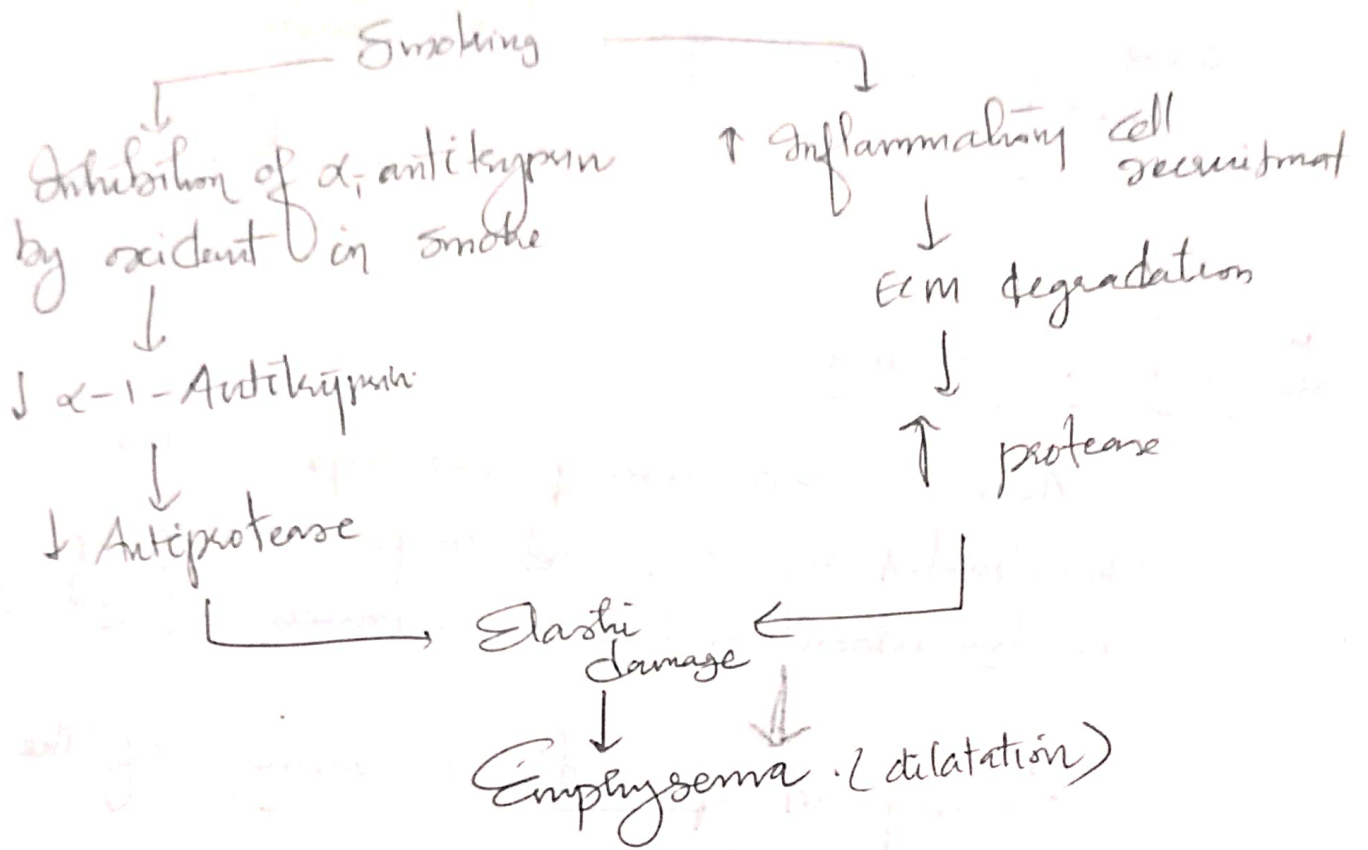 Smoking
Inhibition of α₁ antitrypsin
by oxidant in smoke
↓ α-1-Antitrypsin
↓ Antiprotease
↑ Inflammatory cell
recruitmat
ECM degradation
↑ protease
Elasti
damage
Emphysema. (dilatation)